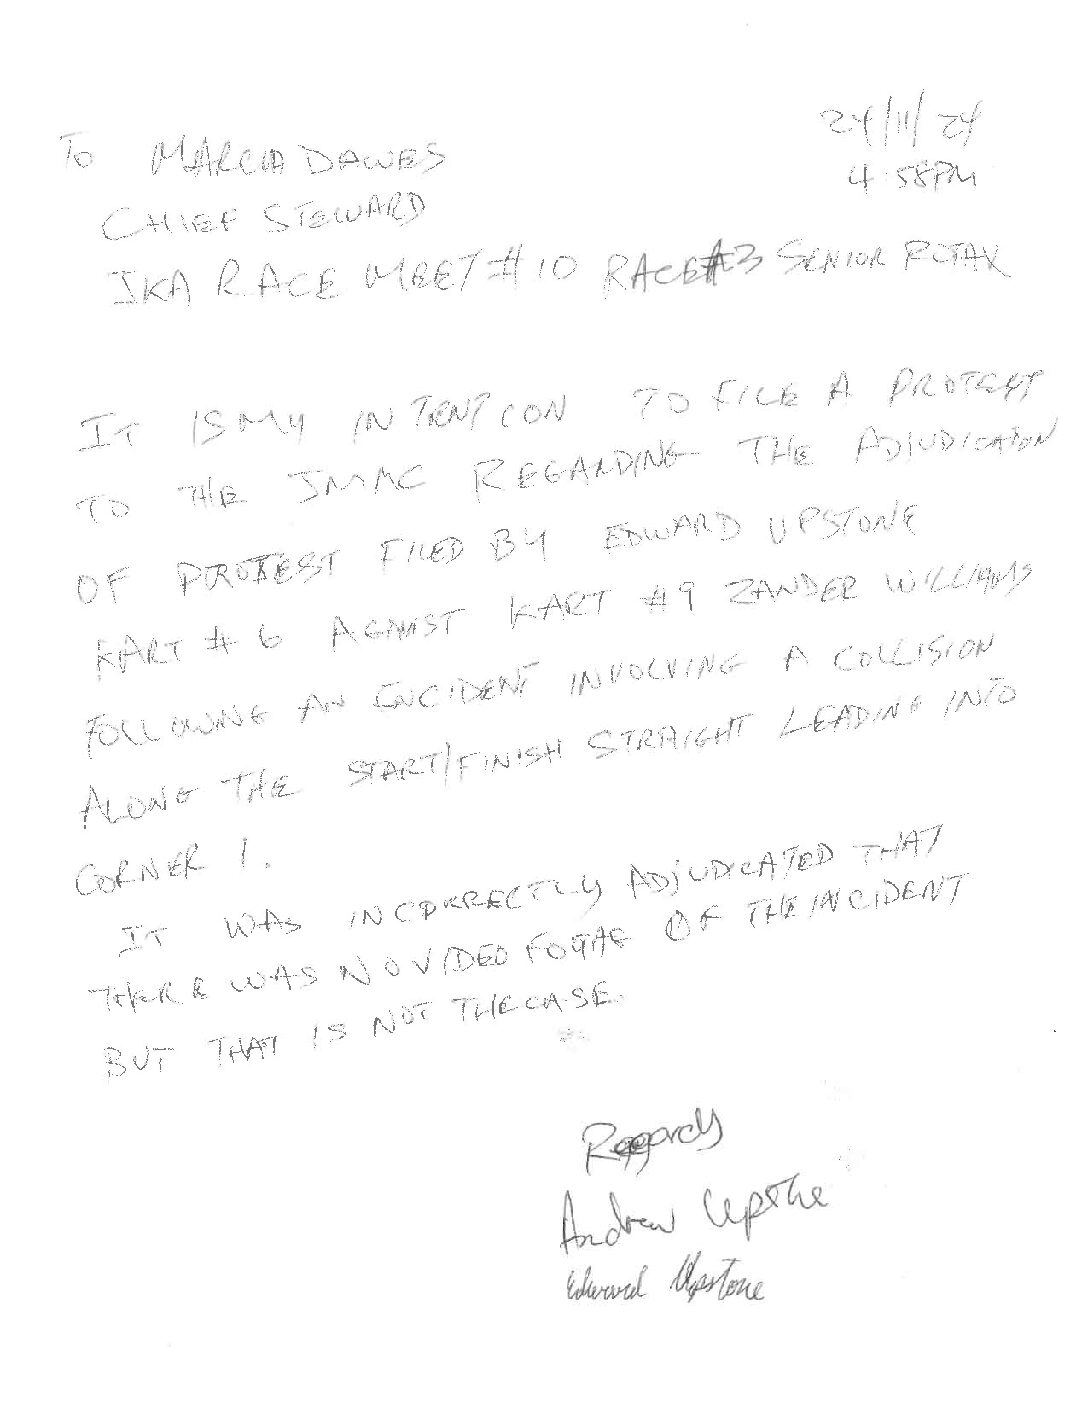 24/11/24
4.58PM
To MARCIA DAWES
CHIEF STEWARD
JKA RACE MEET #10 RACE #3 SENIOR ROTAX
IT IS MY INTENTION TO FILE A PROTEST
TO THE JMMC REGARDING THE ADJUDICATION
OF PROTEST FILED BY EDWARD UPSTONE
KART # 6 AGAINST KART #9 ZANDER WILLIAMS
FOLLOWING AN INCIDENT INVOLVING A COLLISION
ALONG THE START/FINISH STRAIGHT LEADING INTO
CORNER 1.
IT WAS INCORRECTLY ADJUDICATED THAT
THERE WAS NO VIDEO FOTAE OF THE INCIDENT
BUT THAT IS NOT THE CASE.
Regards
Andrew Upstone
Edward Upstone